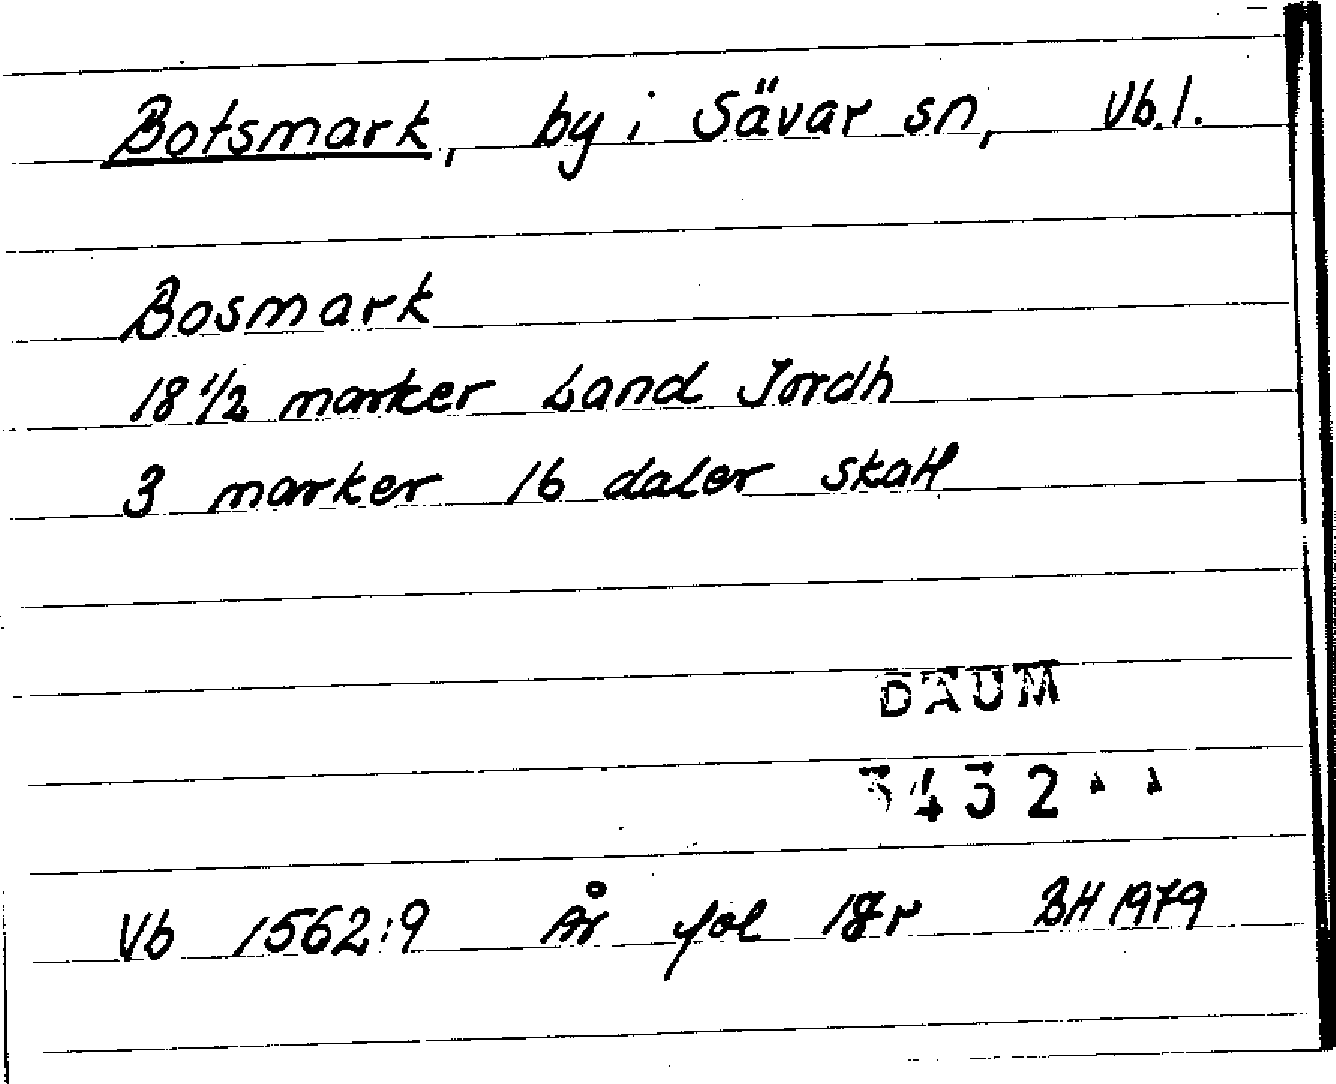 Botsmark, by i Sävar sn, Vb.l.
Bosmark
18 1/2 marker Land Jordh
3 marker 16 daler skatt
DAUM
3432
Vb 1562:9 År fol 18r BH 1979